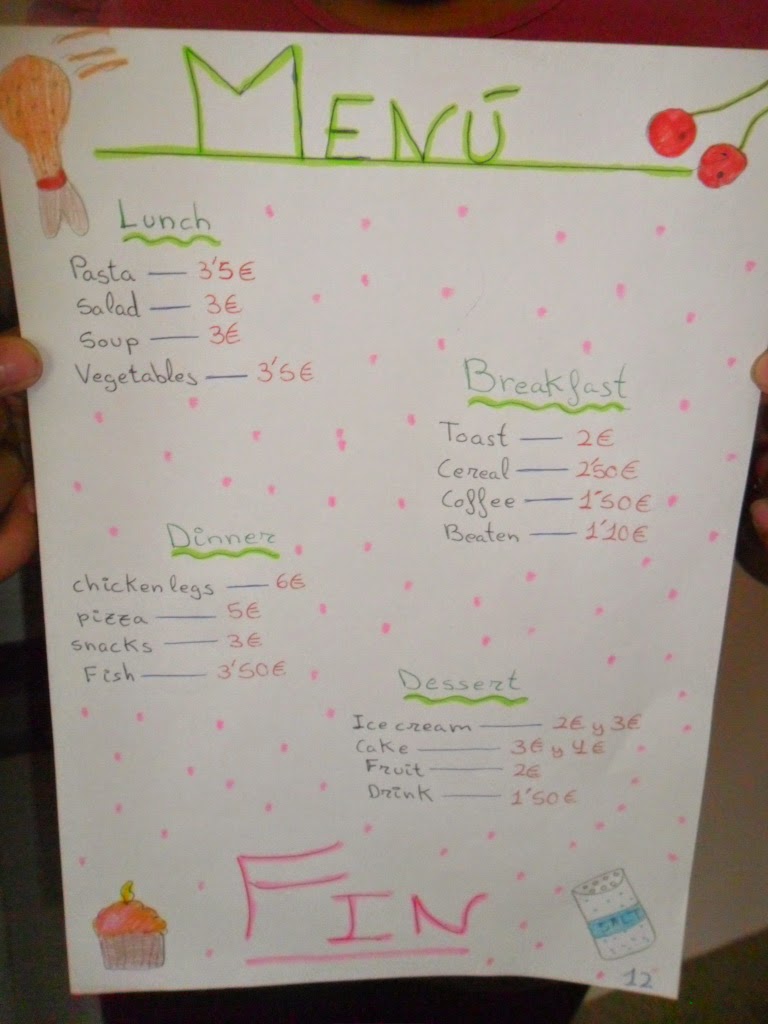 MENÚ
Lunch
Pasta — 3'5€
Salad — 3€
Soup — 3€
Vegetables — 3'5€
Breakfast
Toast — 2€
Cereal — 2'50€
Coffee — 1'50€
Beaten — 1'10€
Dinner
chicken legs — 6€
pizza — 5€
snacks — 3€
Fish — 3'50€
Dessert
Ice cream — 2€ y 3€
Cake — 3€ y 4€
Fruit — 2€
Drink — 1'50€
FIN
SALT
12